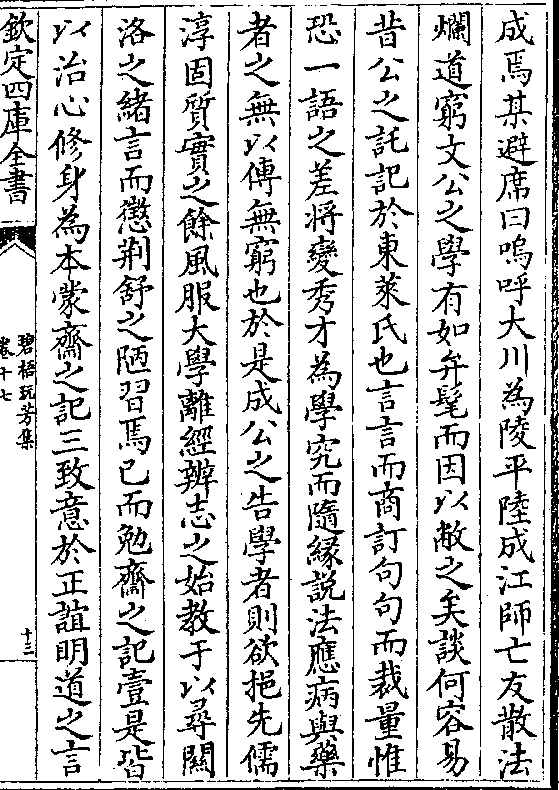 成焉某避席曰嗚呼大川為陵平陸成江師亡友散法
爛道窮文公之學有如弁髦而因以敝之矣談何容易
昔公之託記於東萊氏也言言而商訂句句而裁量惟
恐一語之差將變秀才為學究而隨緣説法應病與藥
者之無以傳無窮也於是成公之告學者則欲挹先儒
淳固質實之餘風服大學離經辨志之始教于以尋關
洛之緒言而懲荆舒之陋習焉已而勉齋之記壹是皆
以治心修身為本蒙齋之記三致意於正誼明道之言
欽定四庫全書
碧梧玩芳集
卷十七
十三